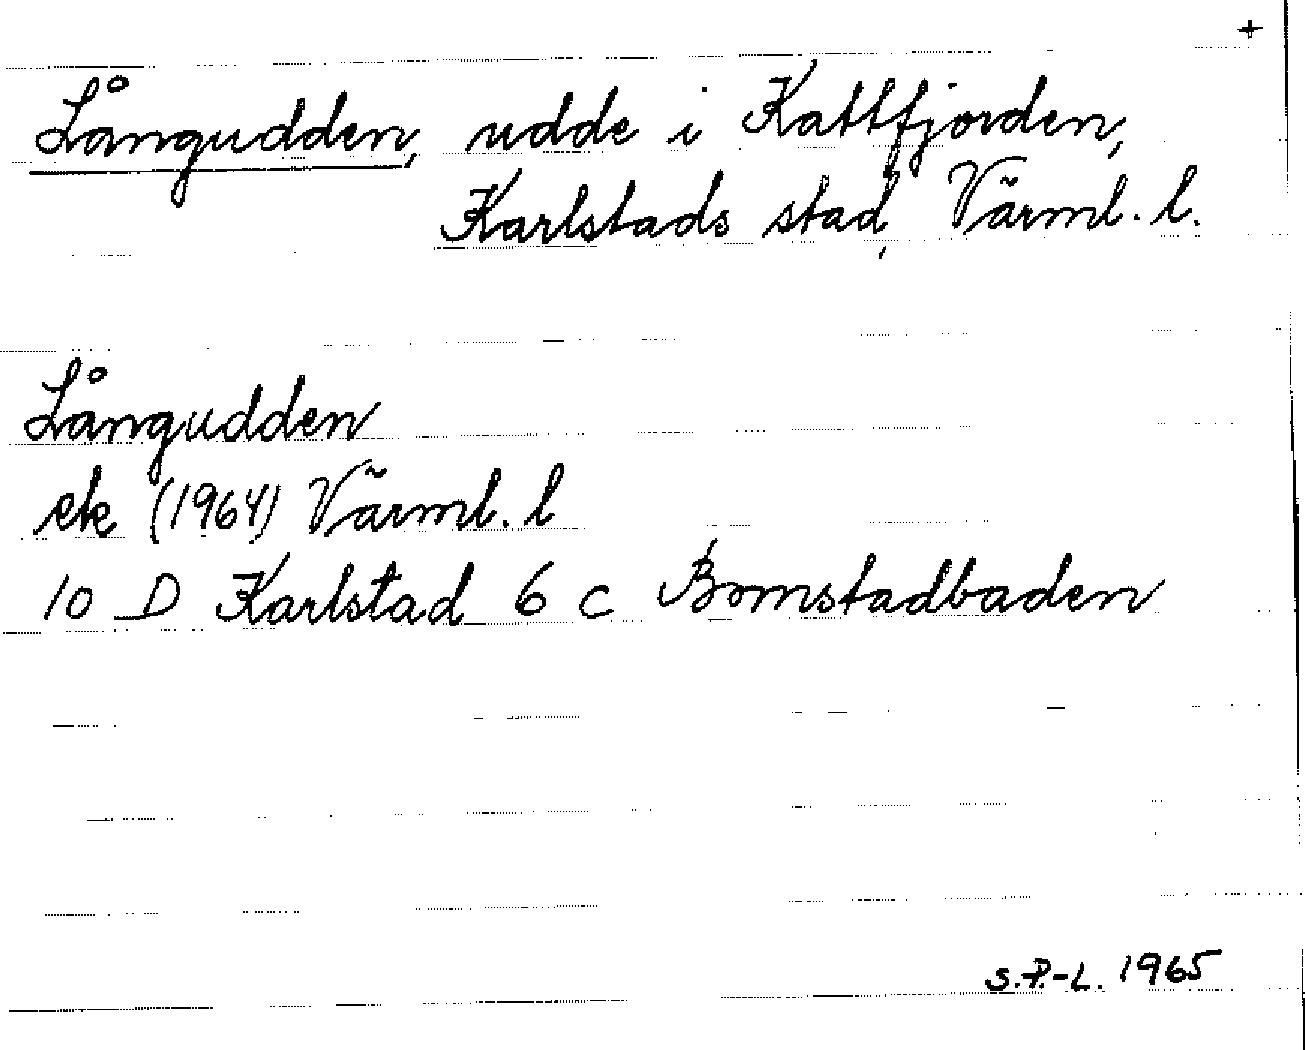 +
Långudden, udde i Kattfjorden,
Karlstads stad, Värml. l.
Långudden
ek (1964) Värml. l
10 D Karlstad 6 c Bomstadbaden
S.P.-L. 1965